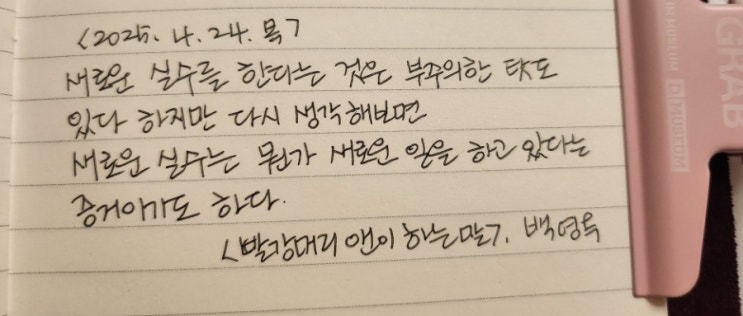 <2025. 4. 24. 목>
새로운 실수를 한다는 것은 부주의한 탓도
있다 하지만 다시 생각해보면
새로운 실수는 뭔가 새로운 일을 하고 있다는
증거이기도 하다.
<빨강머리 앤이 하는 말>. 백영옥
GRAB
MUSEUM
D MUSEUM